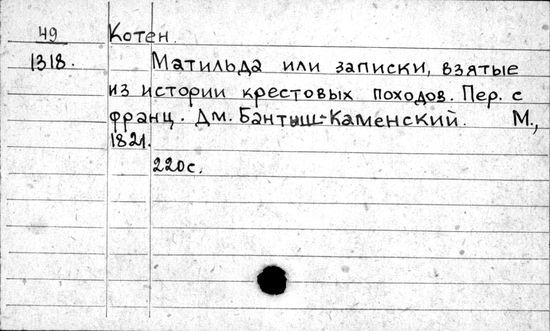 49 Котен.
1318. Матильда или записки, взятые
из истории крестовых походов. Пер. с
франц. Дм. Бантыш-Каменский. М.,
1821.
220с.